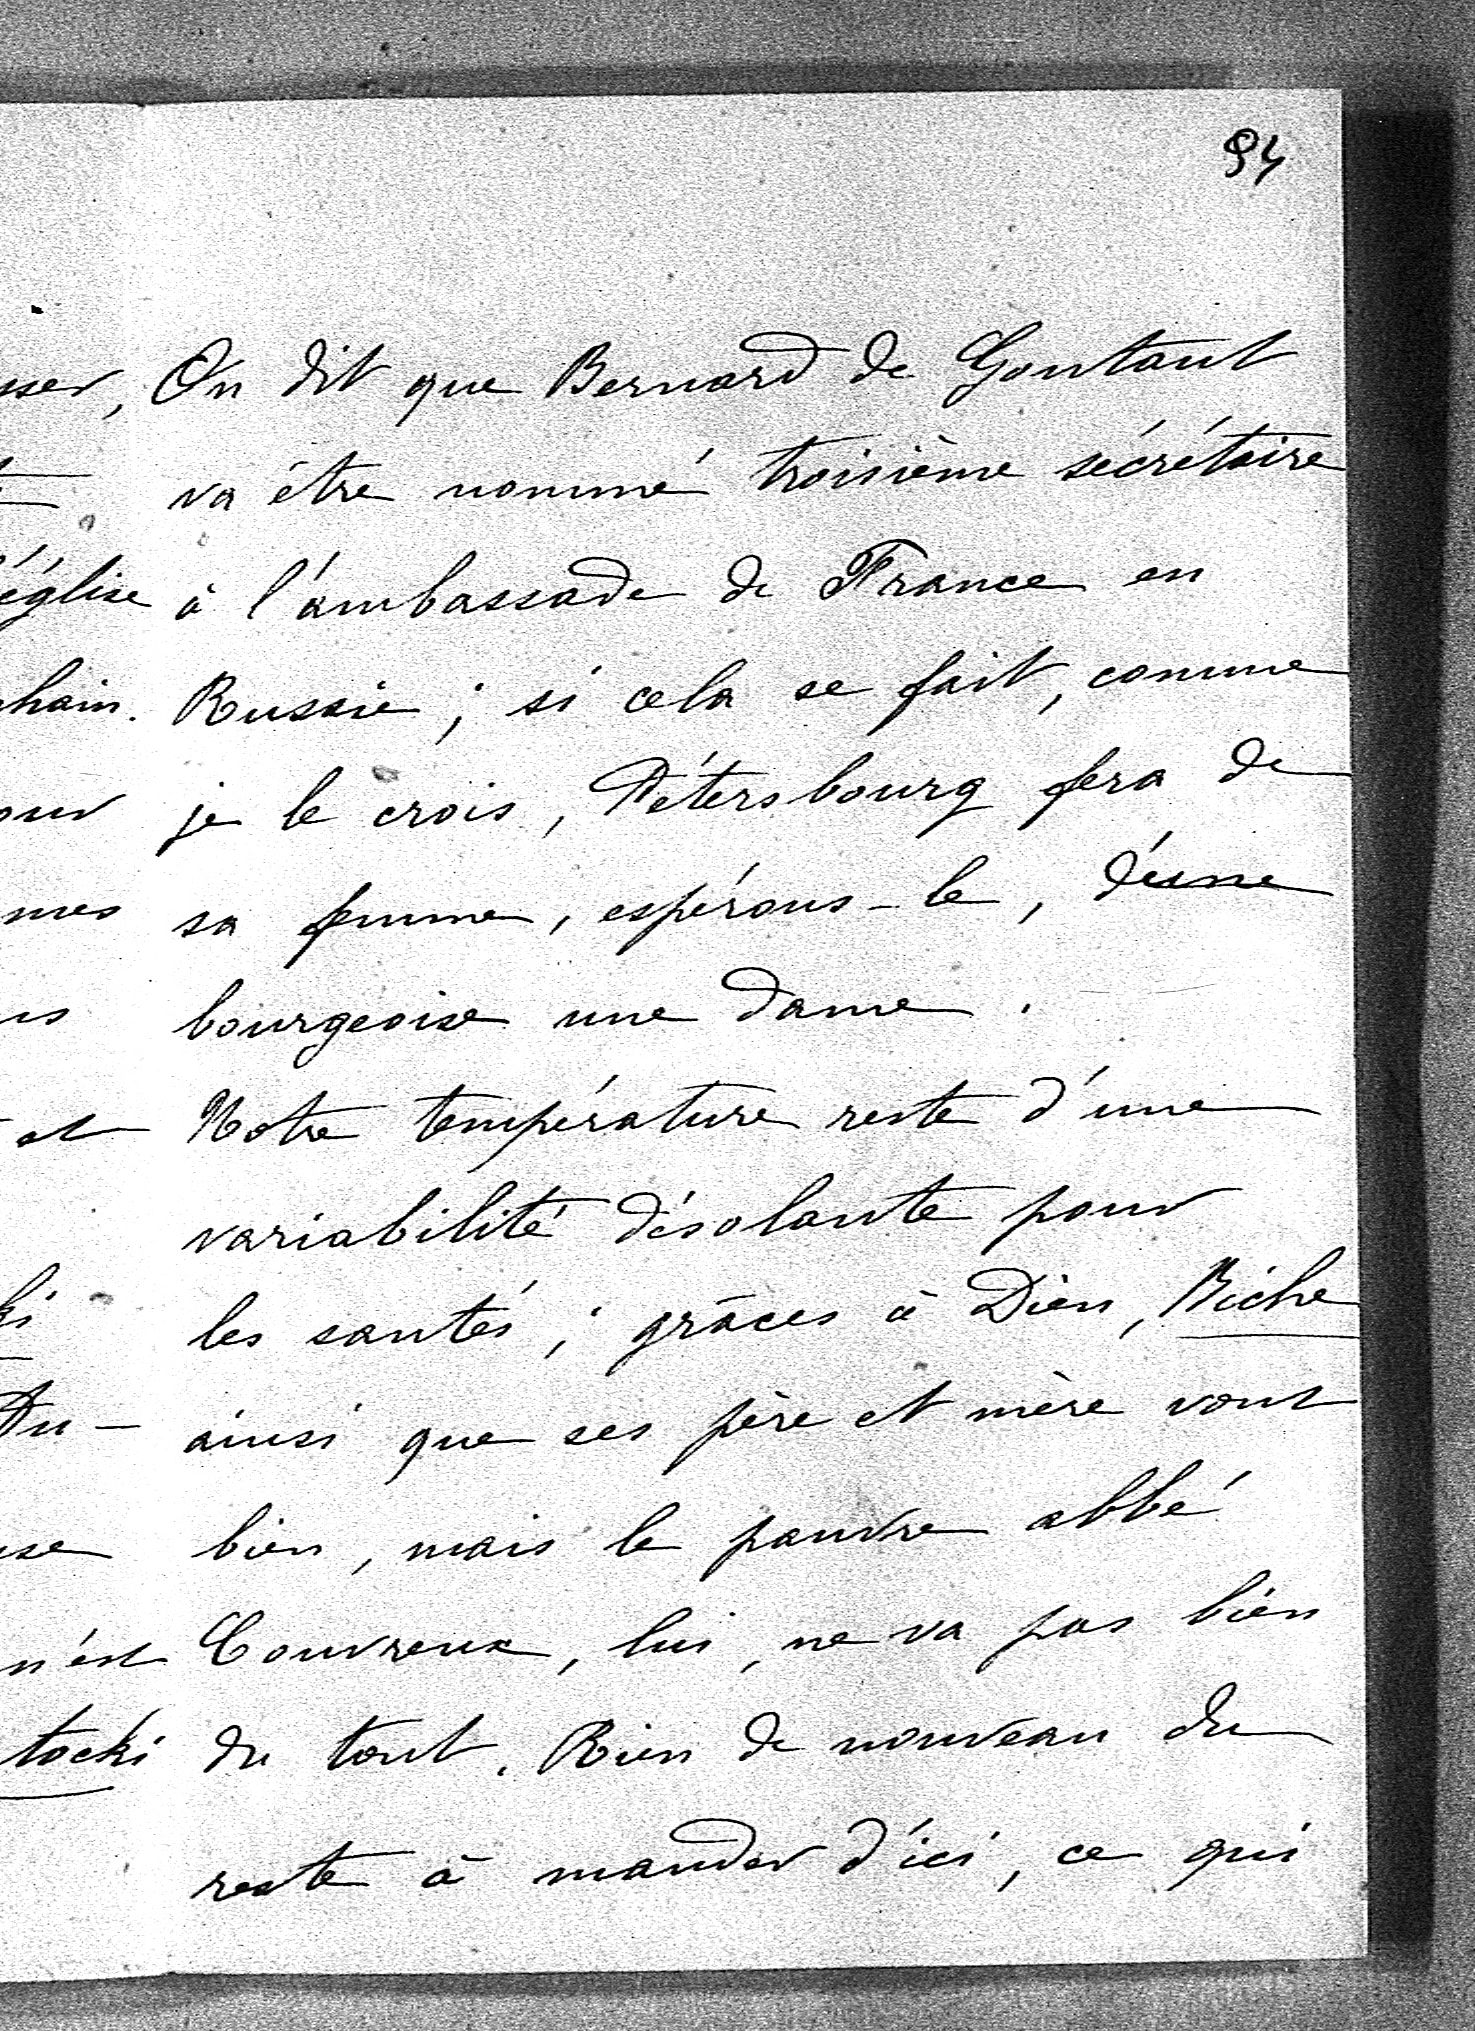 94
On dit que Bernard de Gontaut
va être nommé troisième sécrétaire
à l'ambassade de France en
Russie ; si cela se fait, comme
je le crois, Pétersbourg fera de
sa femme, espérons-le, d'une
bourgeoise une dame.
Notre température reste d'une
variabilité désolante pour
les santés ; grâces à Dieu, Biche
ainsi que ses père et mère vont
bien, mais le pauvre abbé
Couvreux, lui, ne va pas bien
du tout. Rien de nouveau du
reste à mander d'ici, ce qui